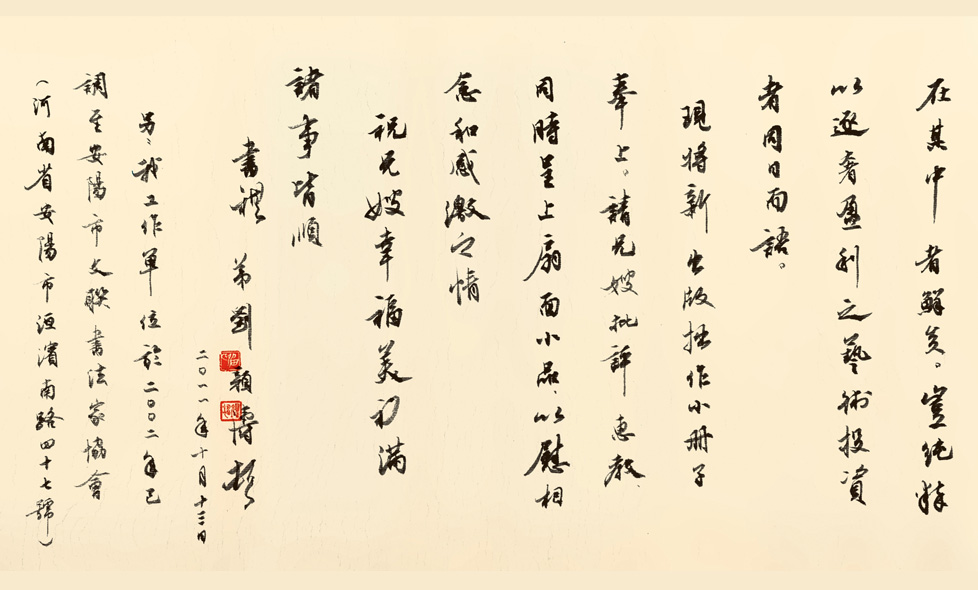 在其中者鮮矣。豈純粹
以逐奢盈利之藝術投資
者同日而語。
現將新出版拙作小冊子
奉上。請兄嫂批評惠教。
同時呈上扇面小品，以慰相
念和感激之情
祝兄嫂幸福美初滿
諸事皆順
書禮
弟劉顏濤揖
二〇一一年十月十三日
另：我工作單位於二〇〇二年已
調至安陽市文聯書法家協會
（河南省安陽市洹濱南路四十七號）